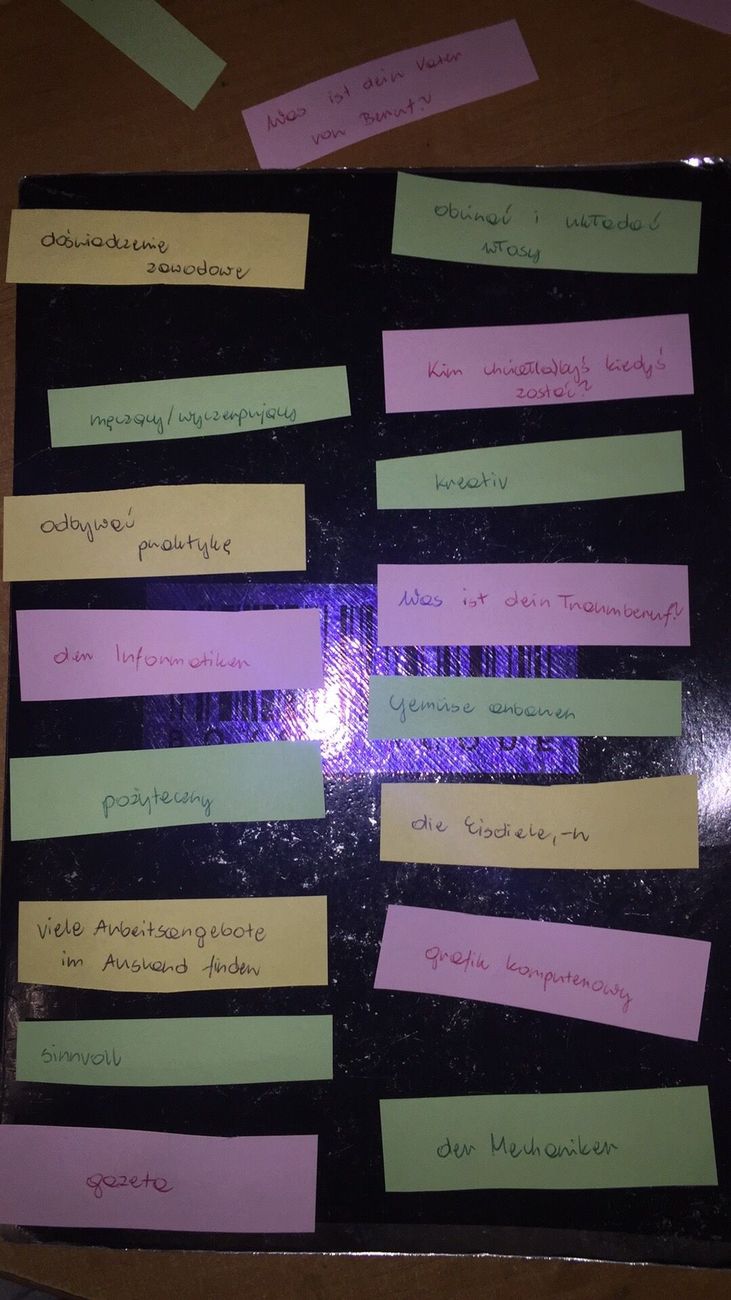 Was ist dein Vater
von Beruf?
doświadczenie
zawodowe
obcinać i układać
włosy
męczący/wyczerpujący
Kim chciał(a)byś kiedyś
zostać?
kreativ
odbywać
praktykę
Was ist dein Traumberuf?
der Informatiker
Gemüse anbauen
pożyteczny
die Eisdiele,-n
viele Arbeitsangebote
im Ausland finden
grafik komputerowy
sinnvoll
der Mechaniker
gazeta